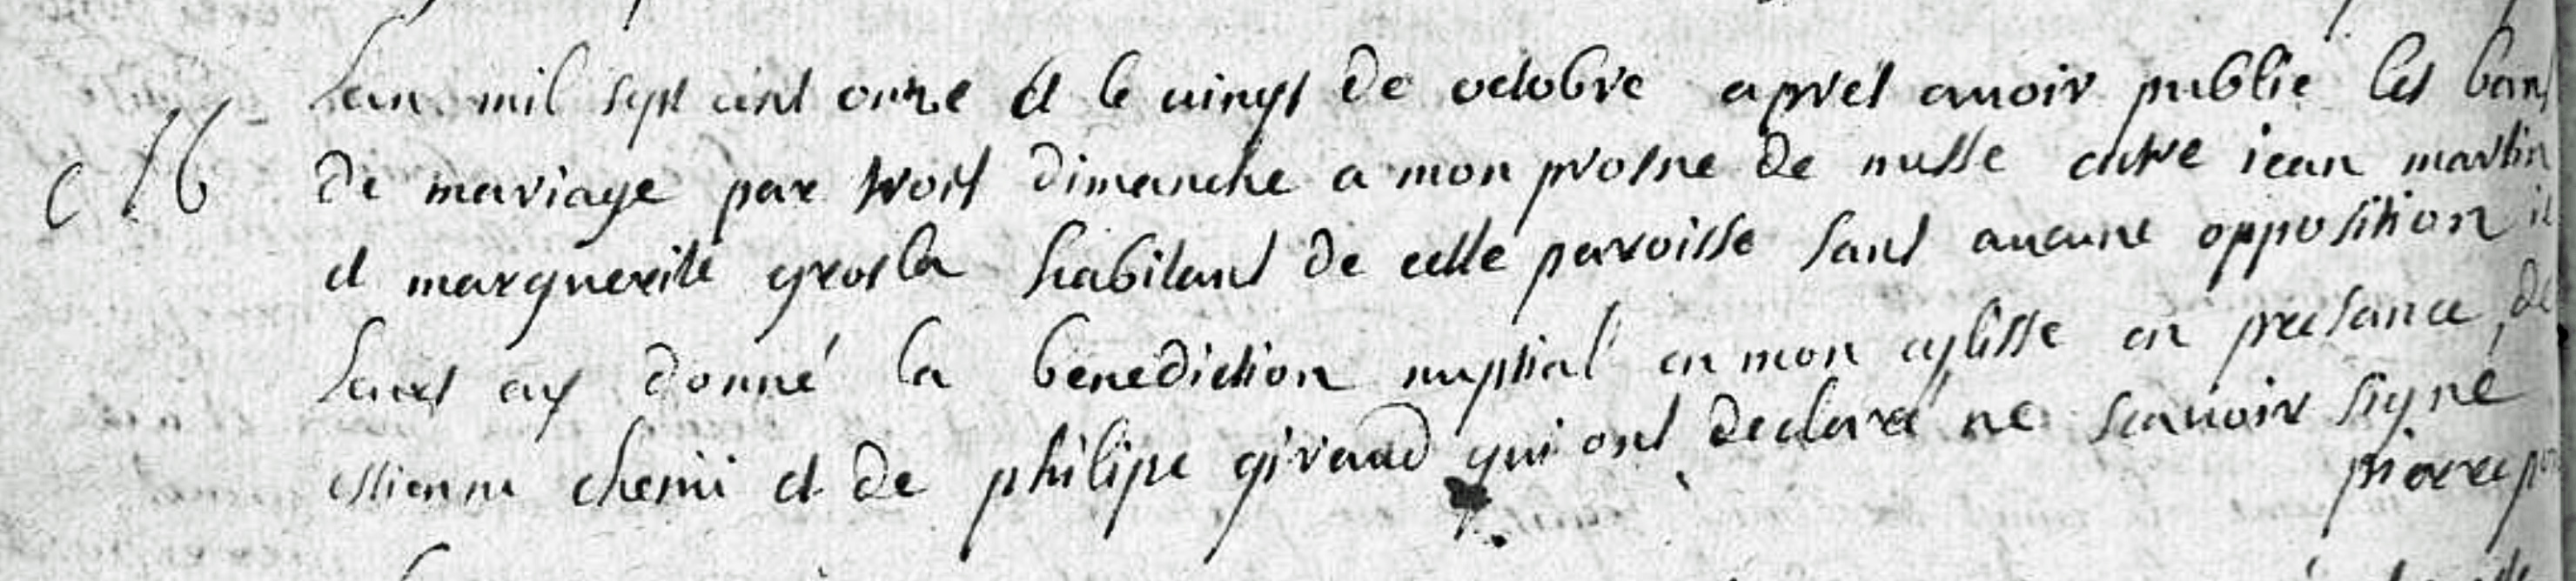 Lan mil sept cent onze et le vingt de octobre apres avoir publie les bans
M de mariage par trois dimanche a mon prosne de messe entre iean martin
et marguerite grosla habitans de cette paroisse sans aucune opposition ie
leurs ay donné la benediction nuptial en mon eglisse en preesance de
estienne chemi et de philipe giraud qui ont declaré ne scauoir signe